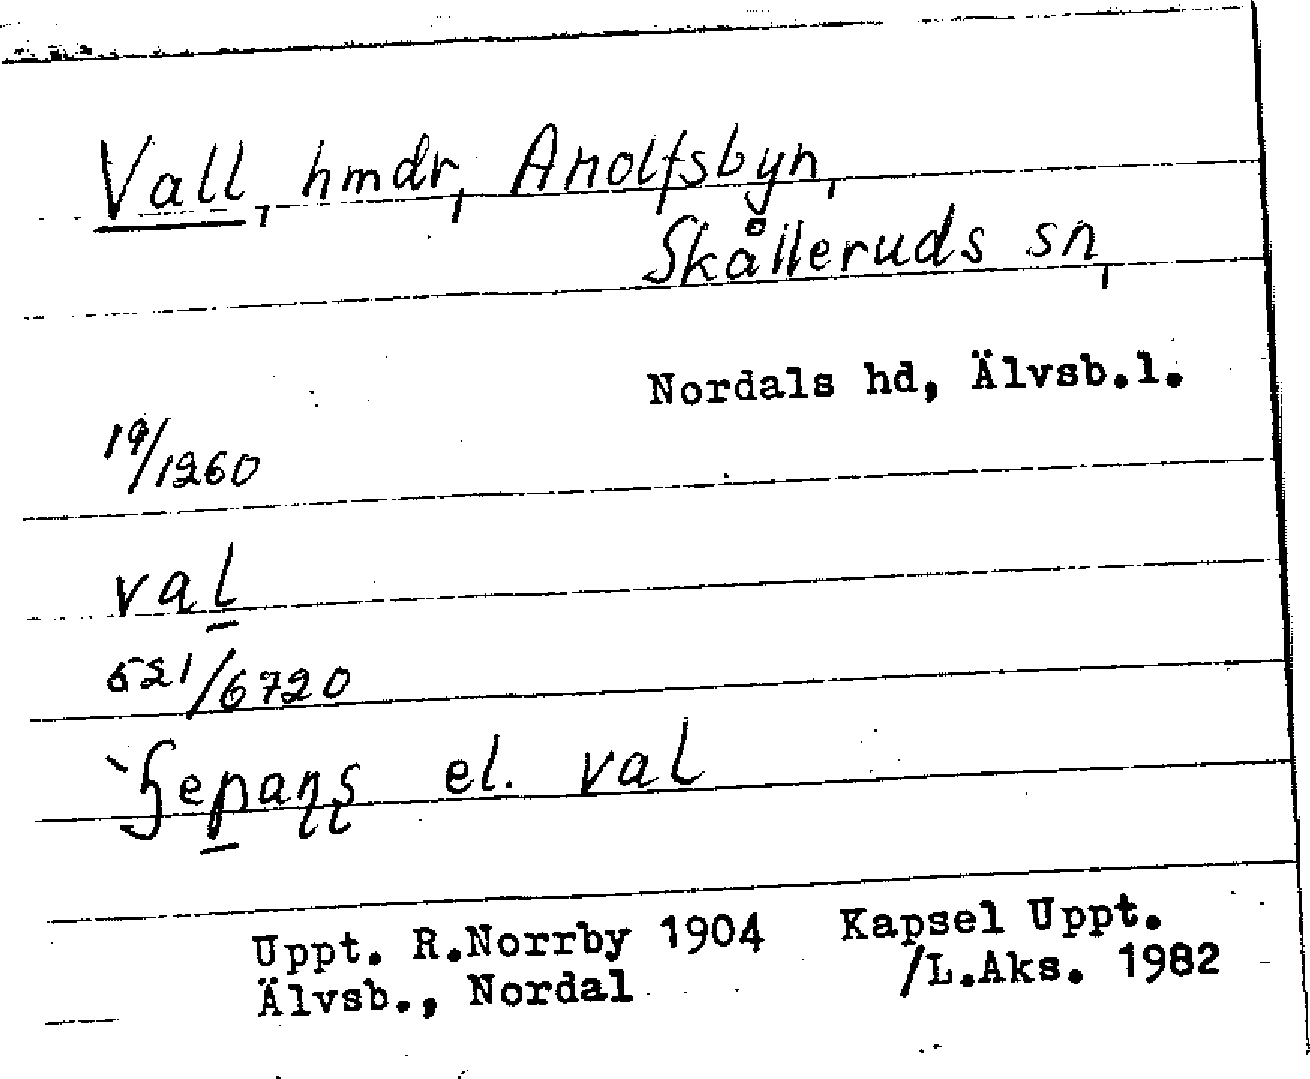 Vall, hmdr, Anolfsbyn,
Skålleruds sn,
Nordals hd, Älvsb.l.
19/1260
val
521/6720
el. val
Uppt. R.Norrby 1904 Kapsel Uppt.
Älvsb., Nordal /L.Aks. 1982